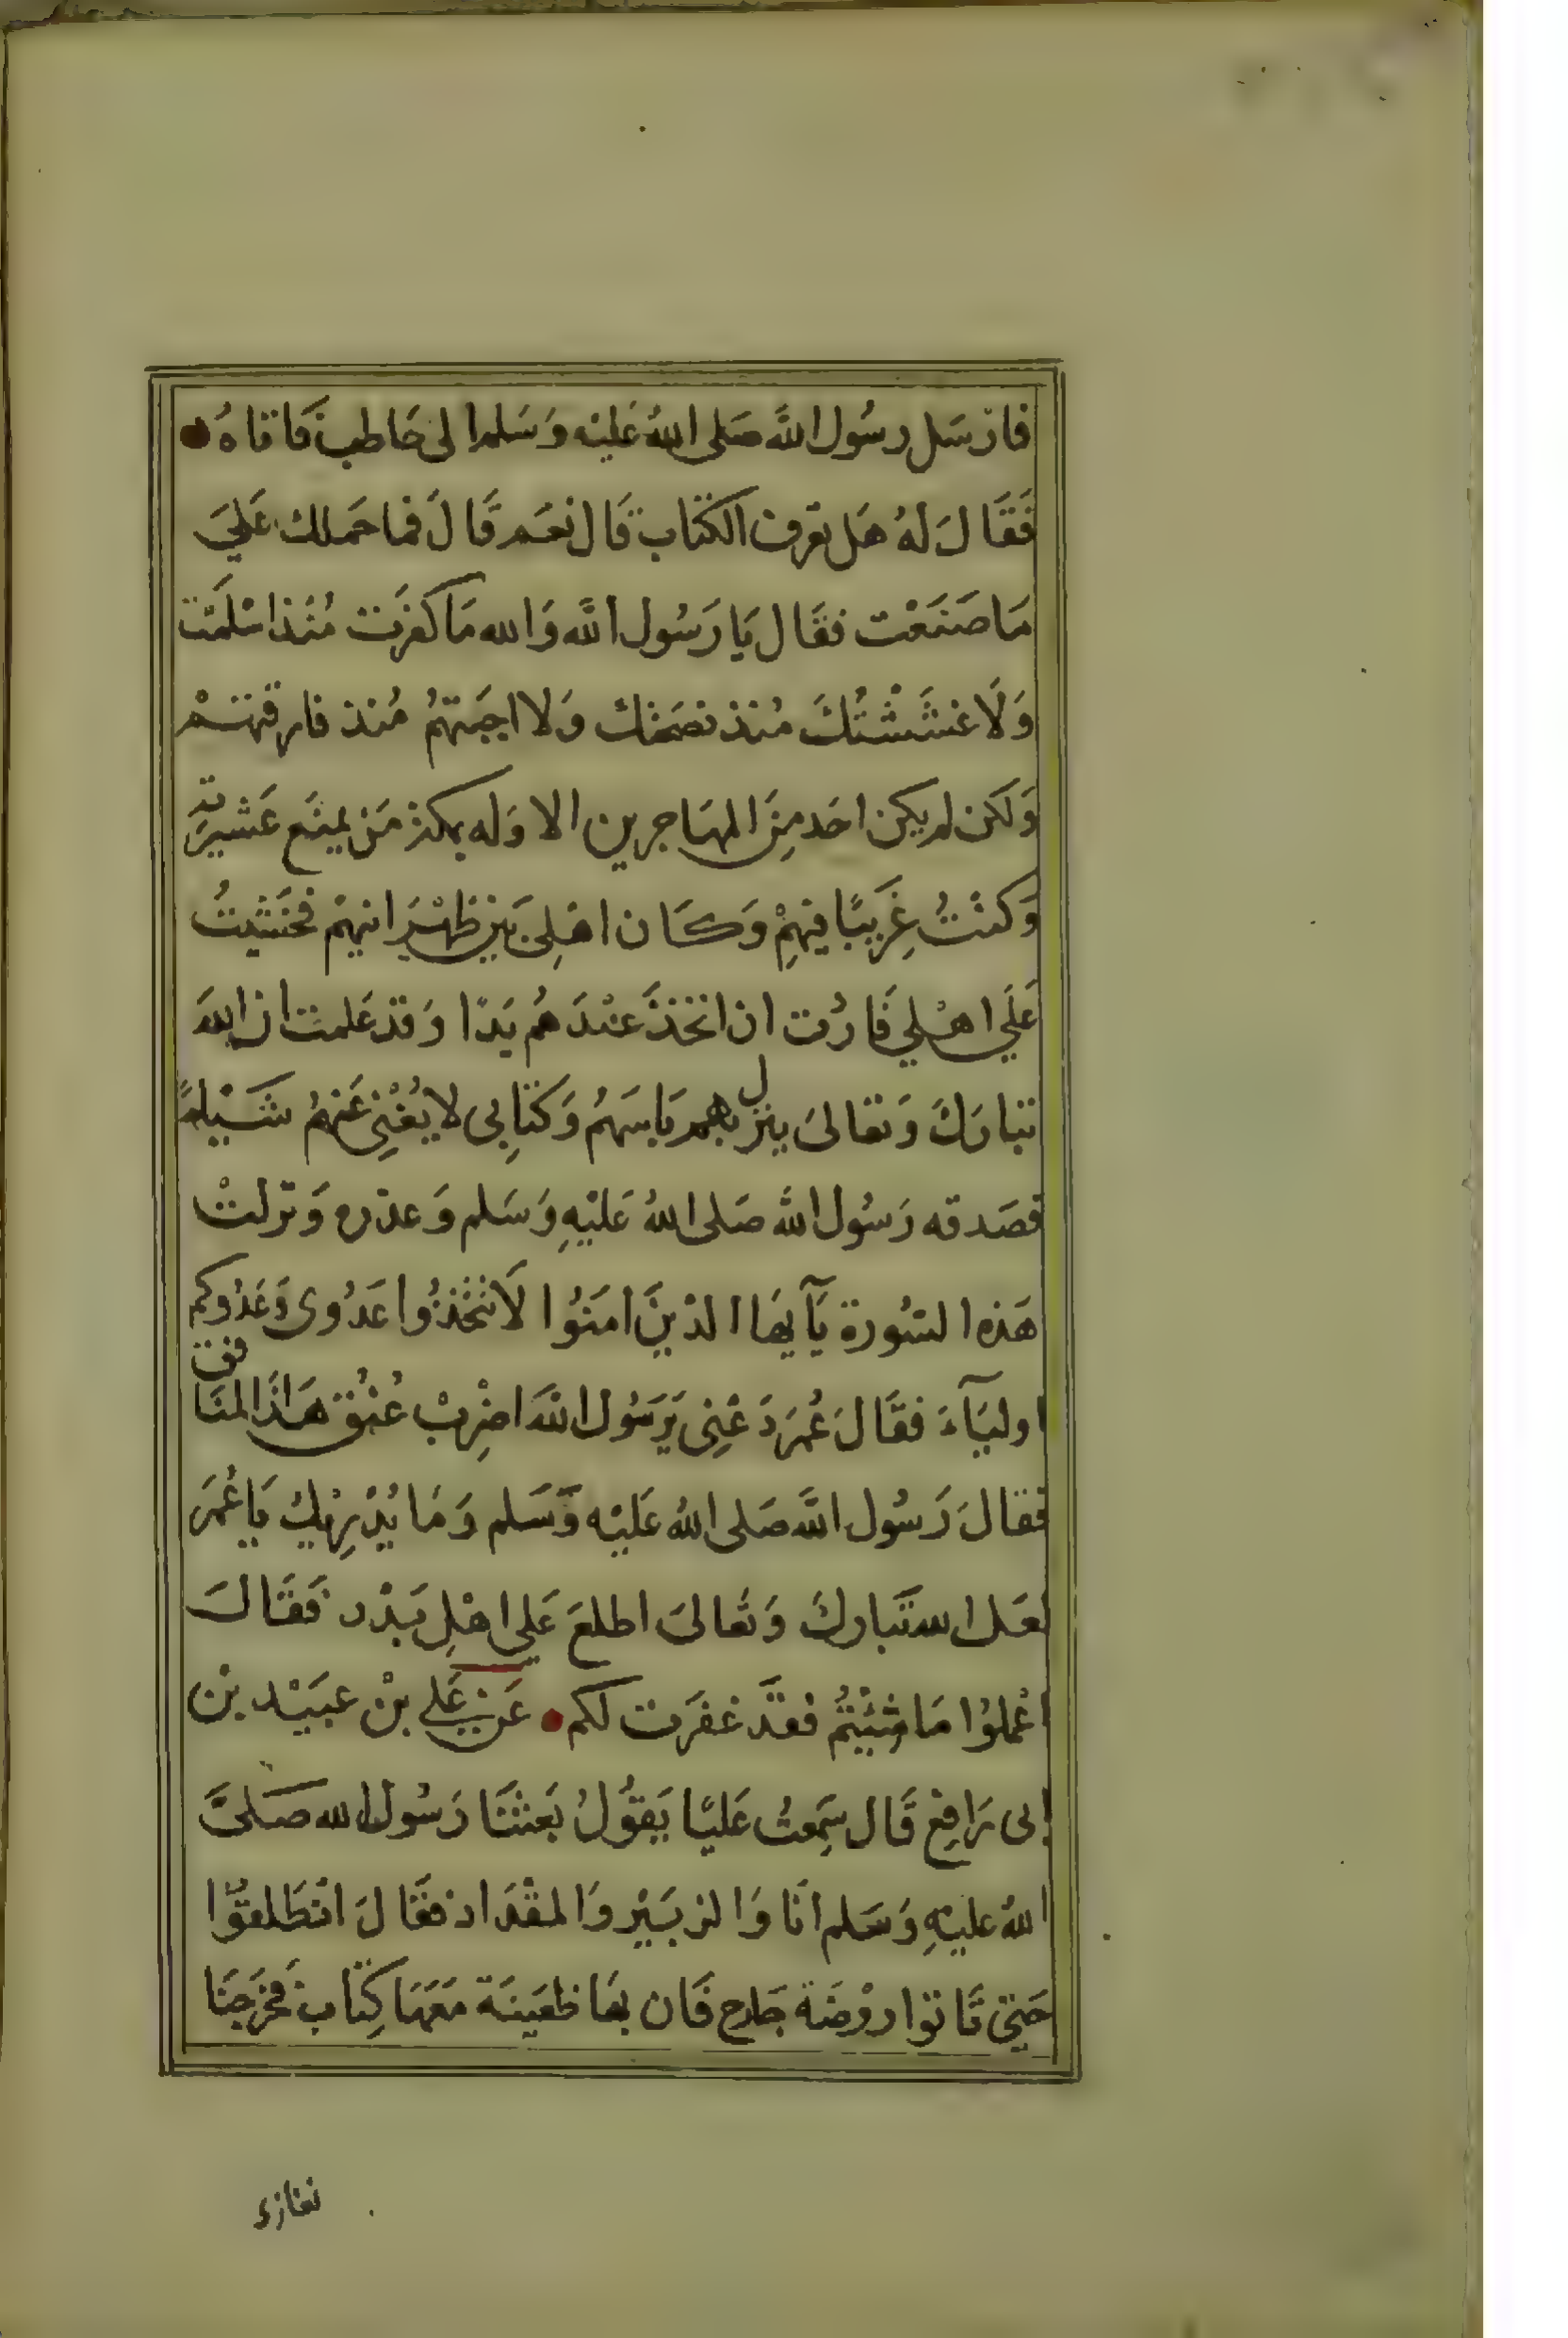 فارسَل رسُول الله صَلى اللهُ عَليْه وَسَلم الى حَاطب فَاتاهُ
فَقَالَ لهُ هَل تعرف الكتَاب قَال نعَم قَالَ فما حَملك عَليَ
مَا صَنَعْت فقَال يَا رَسُول الله وَالله مَا كفرَت مُنذ اسْلمَت
وَلَا غشَشْتُكَ مُنذ نصَحتك وَلا اجبَتهمُ مُنذ فارقتهمْ
وَلكن لم يكن احَد مِنَ المهَاجرين الا وَله بمكة مَن يمنَع عَشيرَته
وَكنْتُ غَرِيبًا فيهِمْ وَكَان اهْلِى بَين ظهْرَانيهمْ فخَشيتُ
عَلَي اهْلي فَاردت ان اتخذَ عنْدَهُم يَدًا وَقد عَلمت ان اللهَ
تبَاركَ وَتعَالىَ ينزل بهم بَاسَهمُ وَكتَابِى لا يُغْنِى عَنهمُ شَيْاً
فصَدقه رَسُول الله صَلى اللهُ عَليْهِ وَسَلم وَعذره وَنزلتْ
هَذه السُورة يَآيهَا الذينَ امَنوُا لَا تتخذُوا عَدُوى وَعَدُوكم
اوليَآءَ فقَالَ عُمَر دَعْنِى يَرَسُول الله اضْرِبْ عُنُق هَاذَا المنَافق
فقالَ رَسُول الله صَلى اللهُ عَليْه وَسَلم وَمَا يُدْرِيْك يَا عُمَر
لعَل الله تَبَاركَ وَتعَالىَ اطلعَ عَلى اهْلِ بَدْر فقَالَ
اعْملوُا مَا شئتُم فقدَ غفرَت لكم عَن عَلي بنْ عبَيْد بن
ابى رَافِع قَال سَمِعتُ عَليًا يَقوُلُ بَعثنَا رَسُول الله صَلىَ
اللهُ عليْهِ وَسَلم انَا وَالزبَيْر وَالمقْدَاد فقَالَ انْطَلقوُا
حَتىَ تَاتوا روْضَة خَاخ فَان بهَا ظعَينَة مَعَهَا كِتَاب فخَرَجنَا